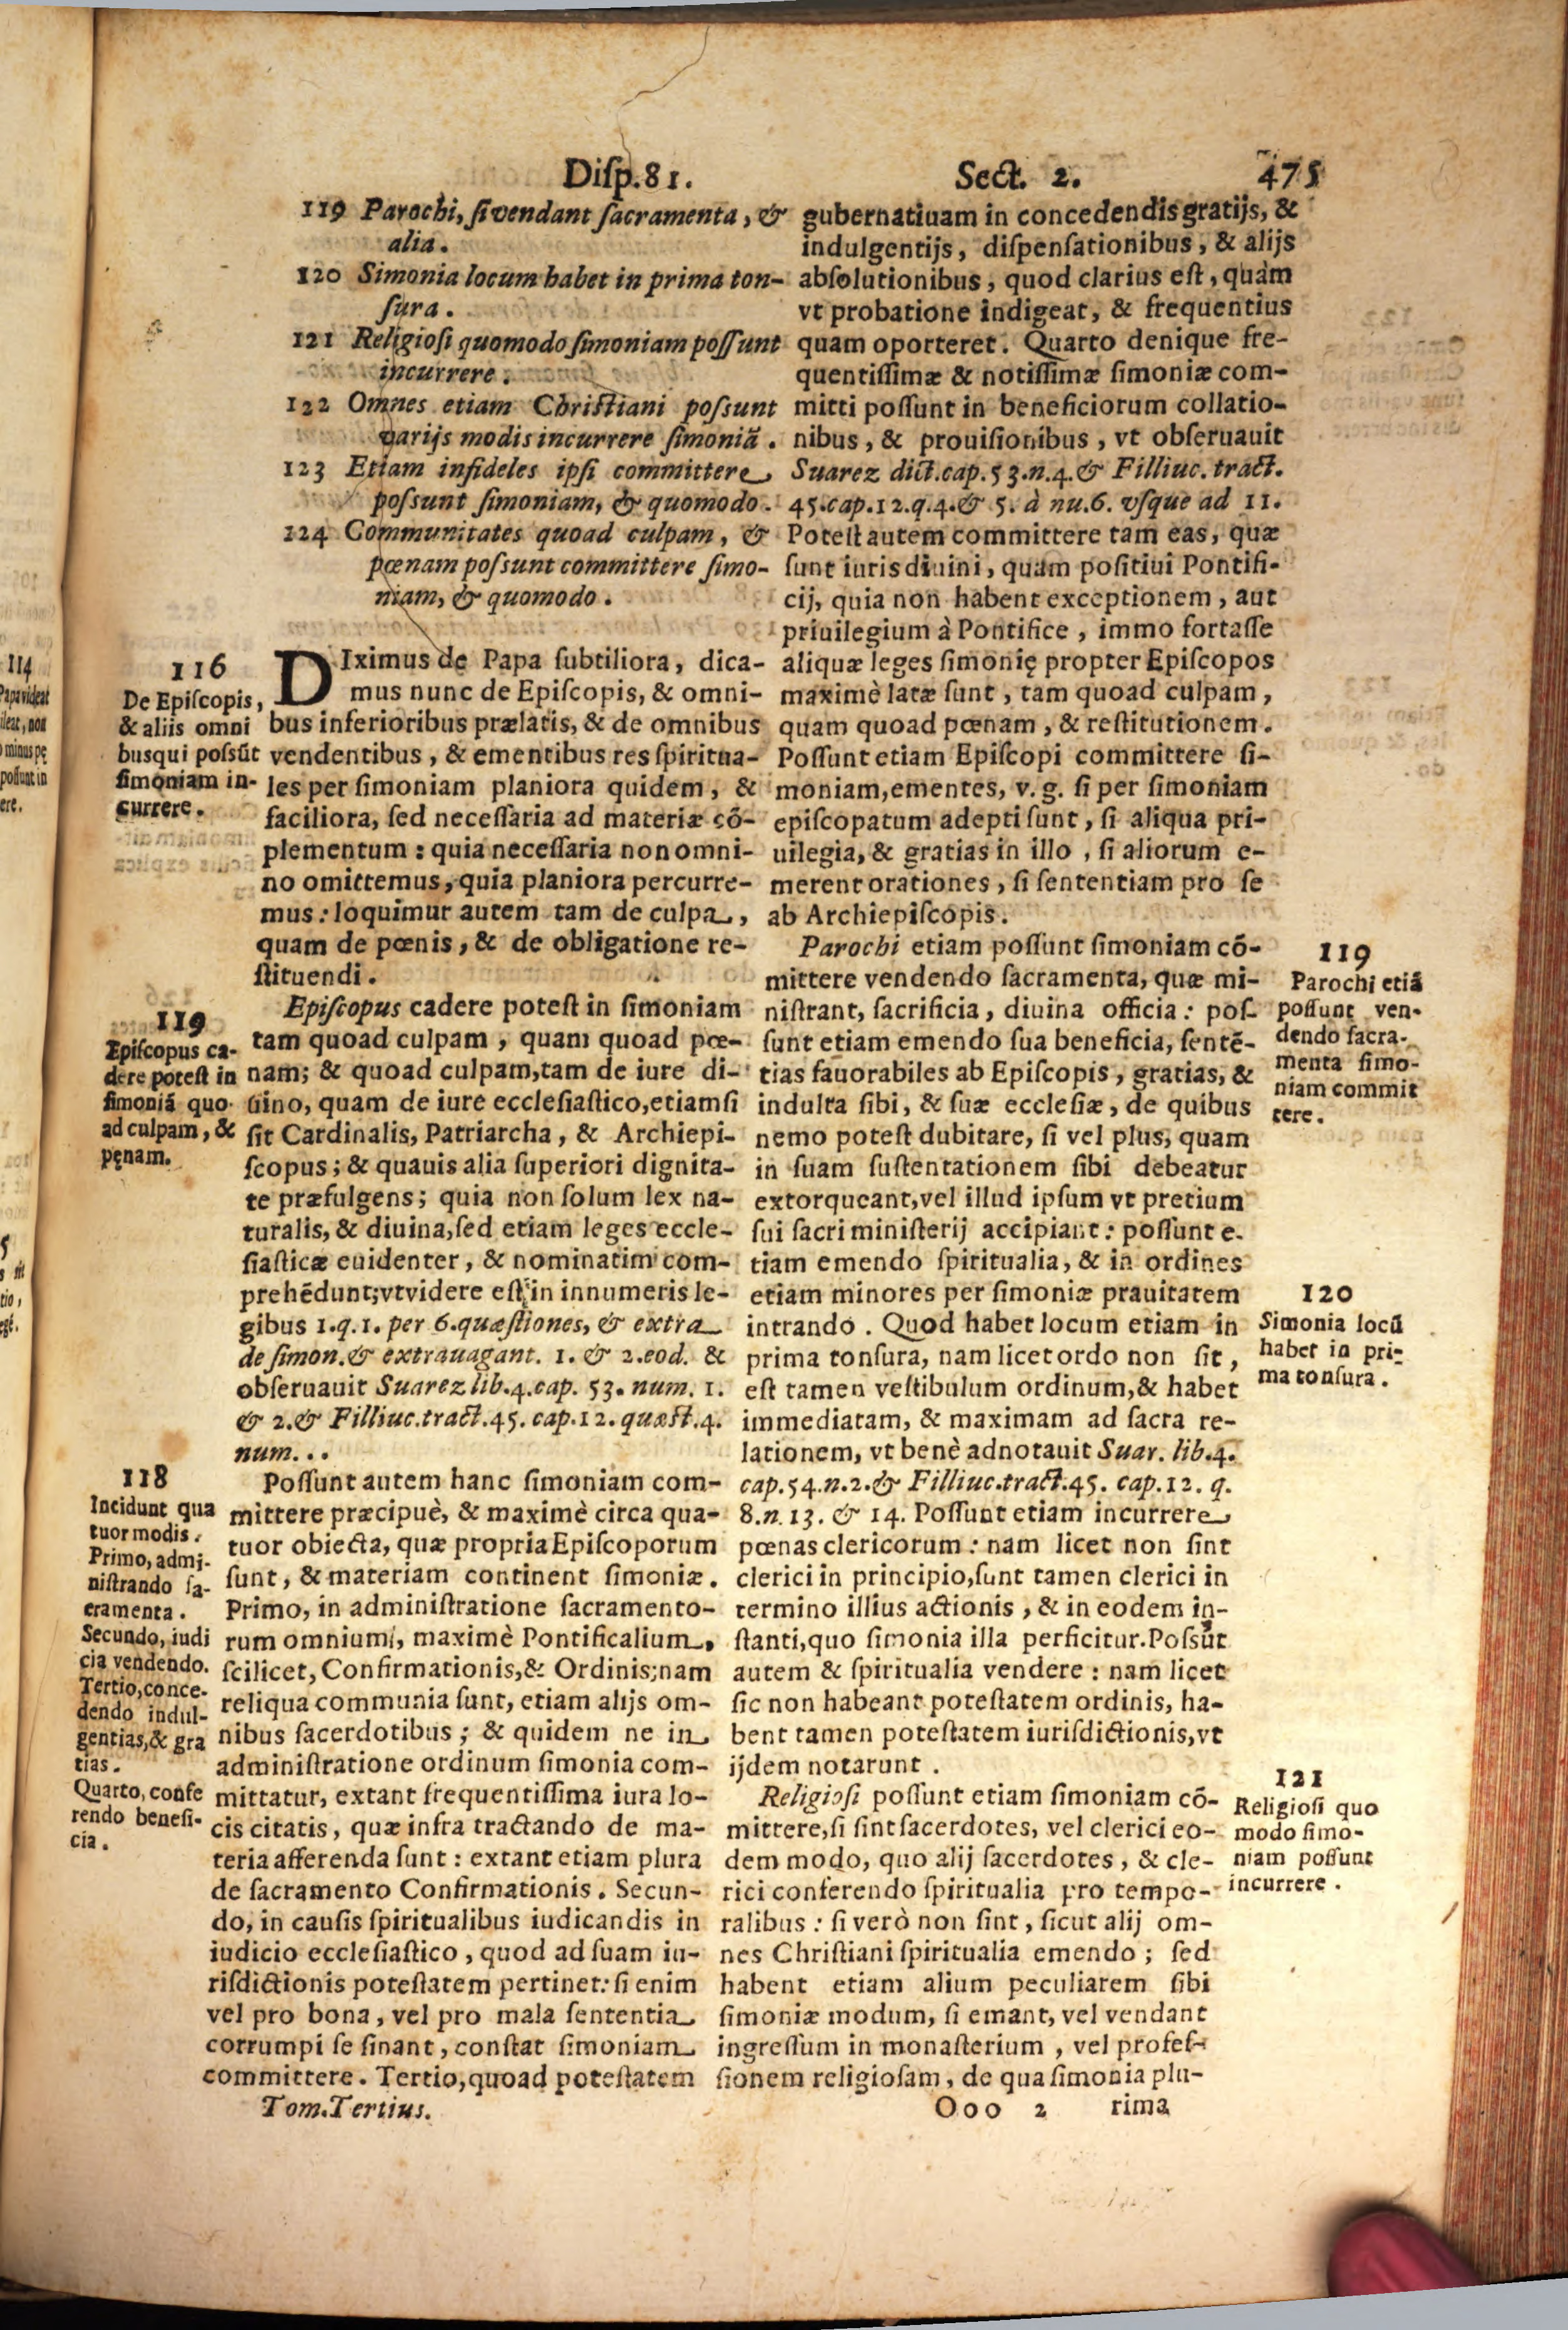 Disp.81. Sect. 2. 475
119 Parochi, si vendant sacramenta, &
alia.
120 Simonia locum habet in prima ton-
sura.
121 Religiosi quomodo simoniam possunt
incurrere.
122 Omnes etiam Christiani possunt
varijs modis incurrere simoniã.
123 Etiam infideles ipsi committere
possunt simoniam, & quomodo.
124 Communitates quoad culpam, &
pœnam possunt committere simo-
niam, & quomodo.
116
De Episcopis,
& aliis omni
busqui possũt
simoniam in-
currere.
DIximus de Papa subtiliora, dica-
mus nunc de Episcopis, & omni-
bus inferioribus prælatis, & de omnibus
vendentibus, & ementibus res spiritua-
les per simoniam planiora quidem, &
faciliora, sed necessaria ad materiæ cõ-
plementum: quia necessaria non omni-
no omittemus, quia planiora percurre-
mus: loquimur autem tam de culpa,
quam de pœnis, & de obligatione re-
stituendi.
119
Episcopus ca-
dere potest in
simoniã quo-
ad culpam, &
pęnam.
Episcopus cadere potest in simoniam
tam quoad culpam, quam quoad pœ-
nam; & quoad culpam,tam de iure di-
uino, quam de iure ecclesiastico,etiamsi
sit Cardinalis, Patriarcha, & Archiepi-
scopus; & quauis alia superiori dignita-
te præfulgens; quia non solum lex na-
turalis, & diuina,sed etiam leges eccle-
siasticæ euidenter, & nominatim com-
prehẽdunt;vtvidere est in innumeris le-
gibus 1.q.1. per 6.quæstiones, & extra
de simon.& extrauagant. 1. & 2.eod. &
obseruauit Suarez lib.4.cap. 53. num. 1.
& 2.& Filliuc.tract.45. cap.12. quæst.4.
num...
118
Incidunt qua
tuor modis.
Primo, admi-
nistrando sa-
cramenta.
Secundo, iudi
cia vendendo.
Tertio,conce-
dendo indul-
gentias,& gra
tias.
Quarto, confe
rendo benefi-
cia.
Possunt autem hanc simoniam com-
mittere præcipuè, & maximè circa qua-
tuor obiecta, quæ propria Episcoporum
sunt, & materiam continent simoniæ.
Primo, in administratione sacramento-
rum omnium, maximè Pontificalium,
scilicet, Confirmationis,& Ordinis;nam
reliqua communia sunt, etiam alijs om-
nibus sacerdotibus; & quidem ne in
administratione ordinum simonia com-
mittatur, extant frequentissima iura lo-
cis citatis, quæ infra tractando de ma-
teria afferenda sunt: extant etiam plura
de sacramento Confirmationis. Secun-
do, in causis spiritualibus iudicandis in
iudicio ecclesiastico, quod ad suam iu-
risdictionis potestatem pertinet: si enim
vel pro bona, vel pro mala sententia
corrumpi se sinant, constat simoniam
committere. Tertio,quoad potestatem
gubernatiuam in concedendis gratijs, &
indulgentijs, dispensationibus, & alijs
absolutionibus, quod clarius est, quàm
vt probatione indigeat, & frequentius
quam oporteret. Quarto denique fre-
quentissimæ & notissimæ simoniæ com-
mitti possunt in beneficiorum collatio-
nibus, & prouisionibus, vt obseruauit
Suarez dict.cap.53.n.4.& Filliuc. tract.
45.cap.12.q.4.& 5. à nu.6. vsque ad 11.
Potest autem committere tam eas, quæ
sunt iuris diuini, quam positiui Pontifi-
cij, quia non habent exceptionem, aut
priuilegium à Pontifice, immo fortasse
aliquæ leges simonię propter Episcopos
maximè latæ sunt, tam quoad culpam,
quam quoad pœnam, & restitutionem.
Possunt etiam Episcopi committere si-
moniam,ementes, v.g. si per simoniam
episcopatum adepti sunt, si aliqua pri-
uilegia, & gratias in illo, si aliorum e-
merent orationes, si sententiam pro se
ab Archiepiscopis.
Parochi etiam possunt simoniam cõ-
mittere vendendo sacramenta, quæ mi-
nistrant, sacrificia, diuina officia: pos-
sunt etiam emendo sua beneficia, sentẽ-
tias fauorabiles ab Episcopis, gratias, &
indulta sibi, & suæ ecclesiæ, de quibus
nemo potest dubitare, si vel plus, quam
in suam sustentationem sibi debeatur
extorqueant,vel illud ipsum vt pretium
sui sacri ministerij accipiant: possunt e-
tiam emendo spiritualia, & in ordines
etiam minores per simoniæ prauitatem
intrando. Quod habet locum etiam in
prima tonsura, nam licet ordo non sit,
est tamen vestibulum ordinum,& habet
immediatam, & maximam ad sacra re-
lationem, vt benè adnotauit Suar. lib.4.
cap.54.n.2.& Filliuc.tract.45. cap.12. q.
8.n.13. & 14. Possunt etiam incurrere
pœnas clericorum: nam licet non sint
clerici in principio,sunt tamen clerici in
termino illius actionis, & in eodem in-
stanti,quo simonia illa perficitur.Possũt
autem & spiritualia vendere: nam licet
sic non habeant potestatem ordinis, ha-
bent tamen potestatem iurisdictionis,vt
ijdem notarunt.
Religiosi possunt etiam simoniam cõ-
mittere,si sint sacerdotes, vel clerici eo-
dem modo, quo alij sacerdotes, & cle-
rici conferendo spiritualia pro tempo-
ralibus: si verò non sint, sicut alij om-
nes Christiani spiritualia emendo; sed
habent etiam alium peculiarem sibi
simoniæ modum, si emant, vel vendant
ingressum in monasterium, vel profes-
sionem religiosam, de qua simonia plu-
119
Parochi etiã
possunt ven-
dendo sacra-
menta simo-
niam commit
tere.
120
Simonia locũ
habet in pri-
ma tonsura.
121
Religiosi quo
modo simo-
niam possunt
incurrere.
Tom.Tertius. Ooo 2 rima